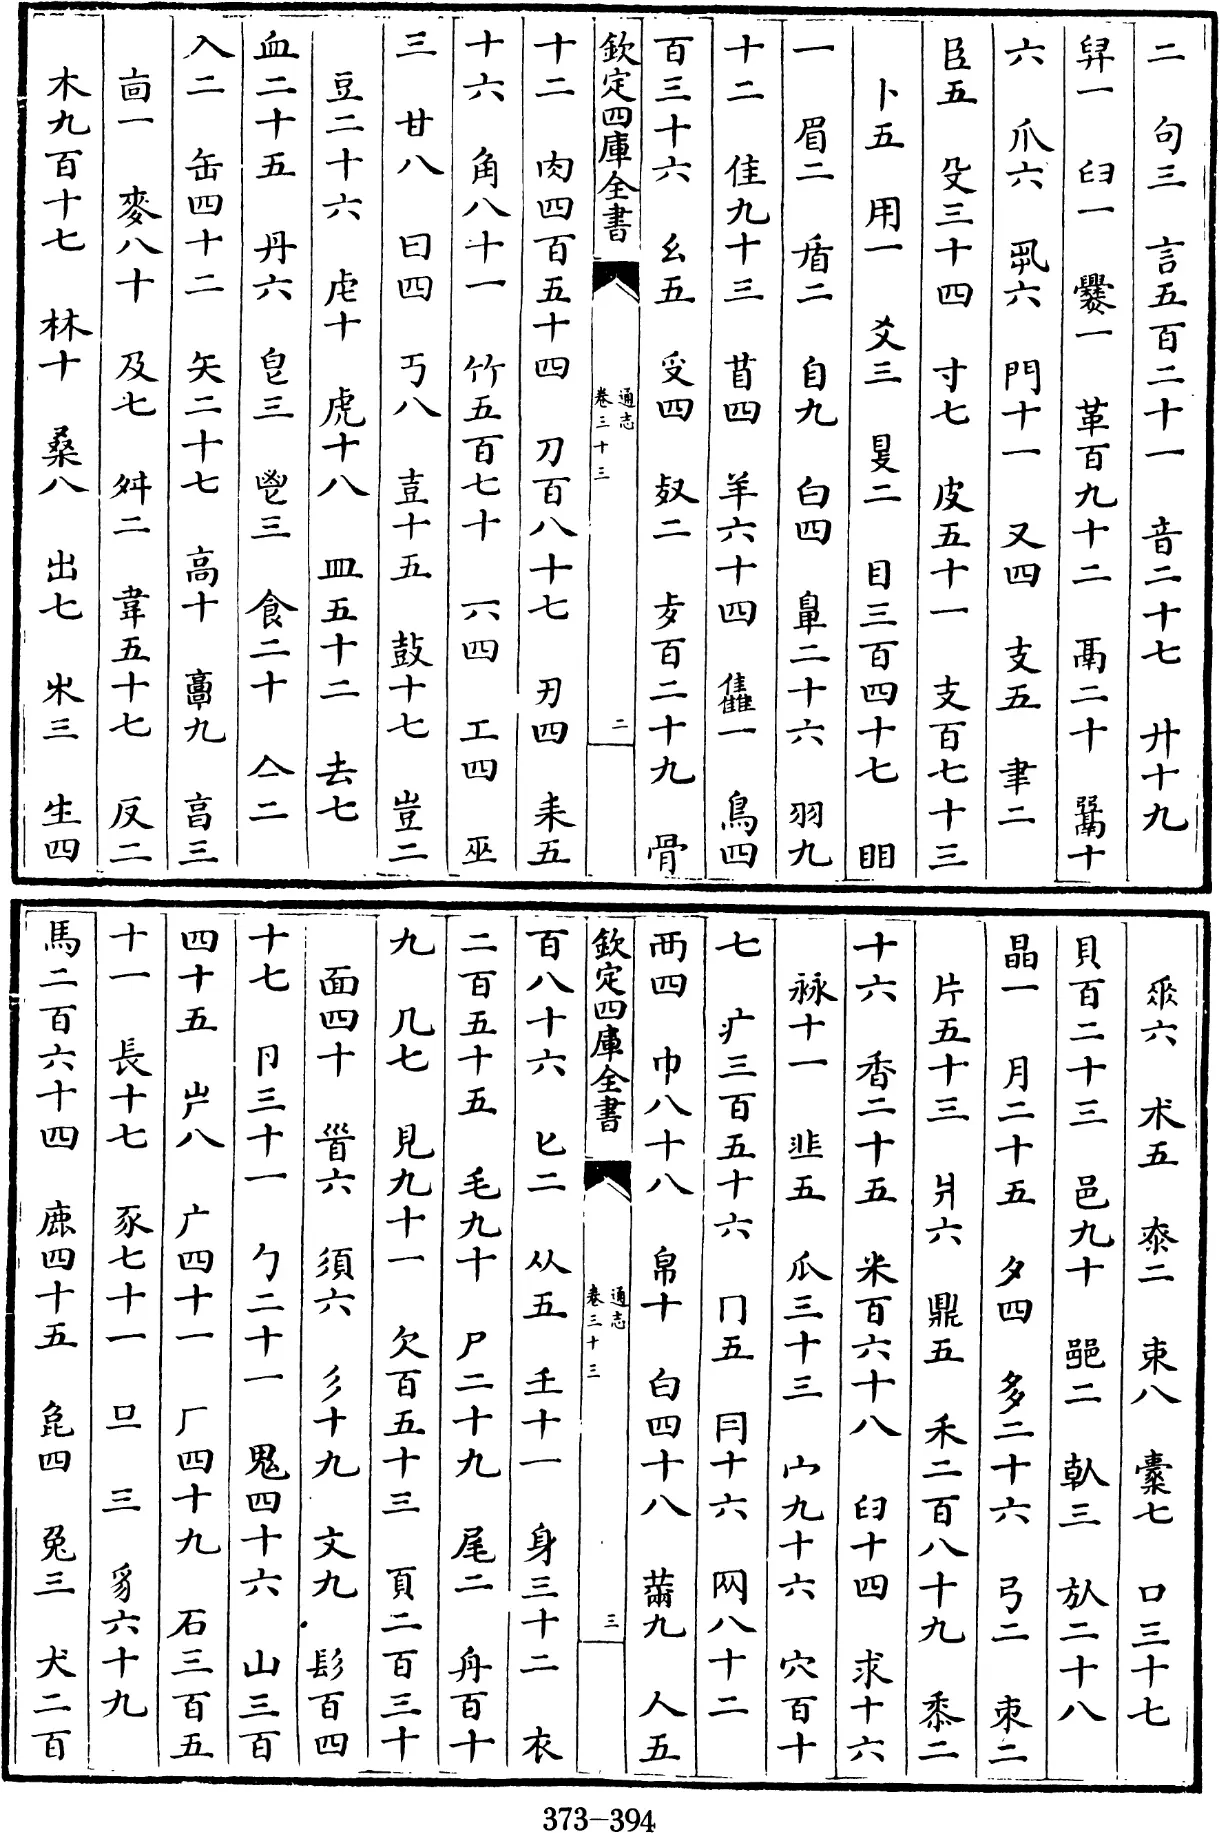 二 句三 言五百二十一 音二十七 廾十九
舁一 臼一 爨一 革百九十二 鬲二十 䰜十
六 爪六 丮六 鬥十一 又四 支五 聿二
臣五 殳三十四 寸七 皮五十一 支百七十三
卜五 用一 爻三 㫑二 目三百四十七 䀠
一 眉二 盾二 自九 白四 鼻二十六 羽九
十二 隹九十三 苜四 羊六十四 雥一 鳥四
百三十六 幺五 受四 㕡二 歺百二十九 骨
欽定四庫全書
通志
卷三十三
二
十二 肉四百五十四 刀百八十七 刃四 耒五
十六 角八十一 竹五百七十 丌四 工四 巫
三 甘八 曰四 丂八 壴十五 鼓十七 豈二
豆二十六 虍十 虎十八 皿五十二 去七
血二十五 丹六 皀三 鬯三 食二十 亼二
入二 缶四十二 矢二十七 高十 𩫖九 㐭三
靣一 麥八十 及七 舛二 韋五十七 反二
木九百十七 林十 桑八 出七 𣎵三 生四
𠂹六 朮五 桼二 束八 橐七 口三十七
貝百二十三 邑九十 𨛜二 倝三 㫃二十八
晶一 月二十五 夕四 多二十六 弓二 朿二
片五十三 爿六 鼎五 禾二百八十九 黍二
十六 香二十五 米百六十八 臼十四 求十六
𥘿十一 韭五 瓜三十三 宀九十六 穴百十
七 疒三百五十六 冂五 冃十六 网八十二
襾四 巾八十八 帛十 白四十八 㒼九 人五
欽定四庫全書
通志
卷三十三
三
百八十六 匕二 从五 壬十一 身三十二 衣
二百五十五 毛九十 尸二十九 尾二 舟百十
九 几七 見九十一 欠百五十三 頁二百三十
面四十 𩠐六 須六 彡十九 文九 髟百四
十七 卪三十一 勹二十一 鬼四十六 山三百
四十五 屵八 广四十一 厂四十九 石三百五
十一 長十七 豕七十一 彑三 豸六十九
馬二百六十四 鹿四十五 㲋四 兔三 犬二百
373-394